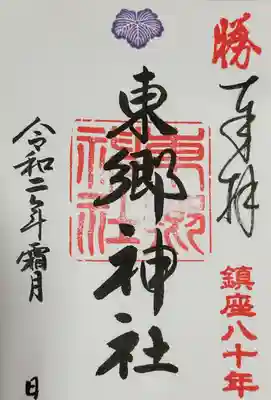 勝
奉拝
鎮座八十年
東郷神社
東郷神社
令和二年霜月
日